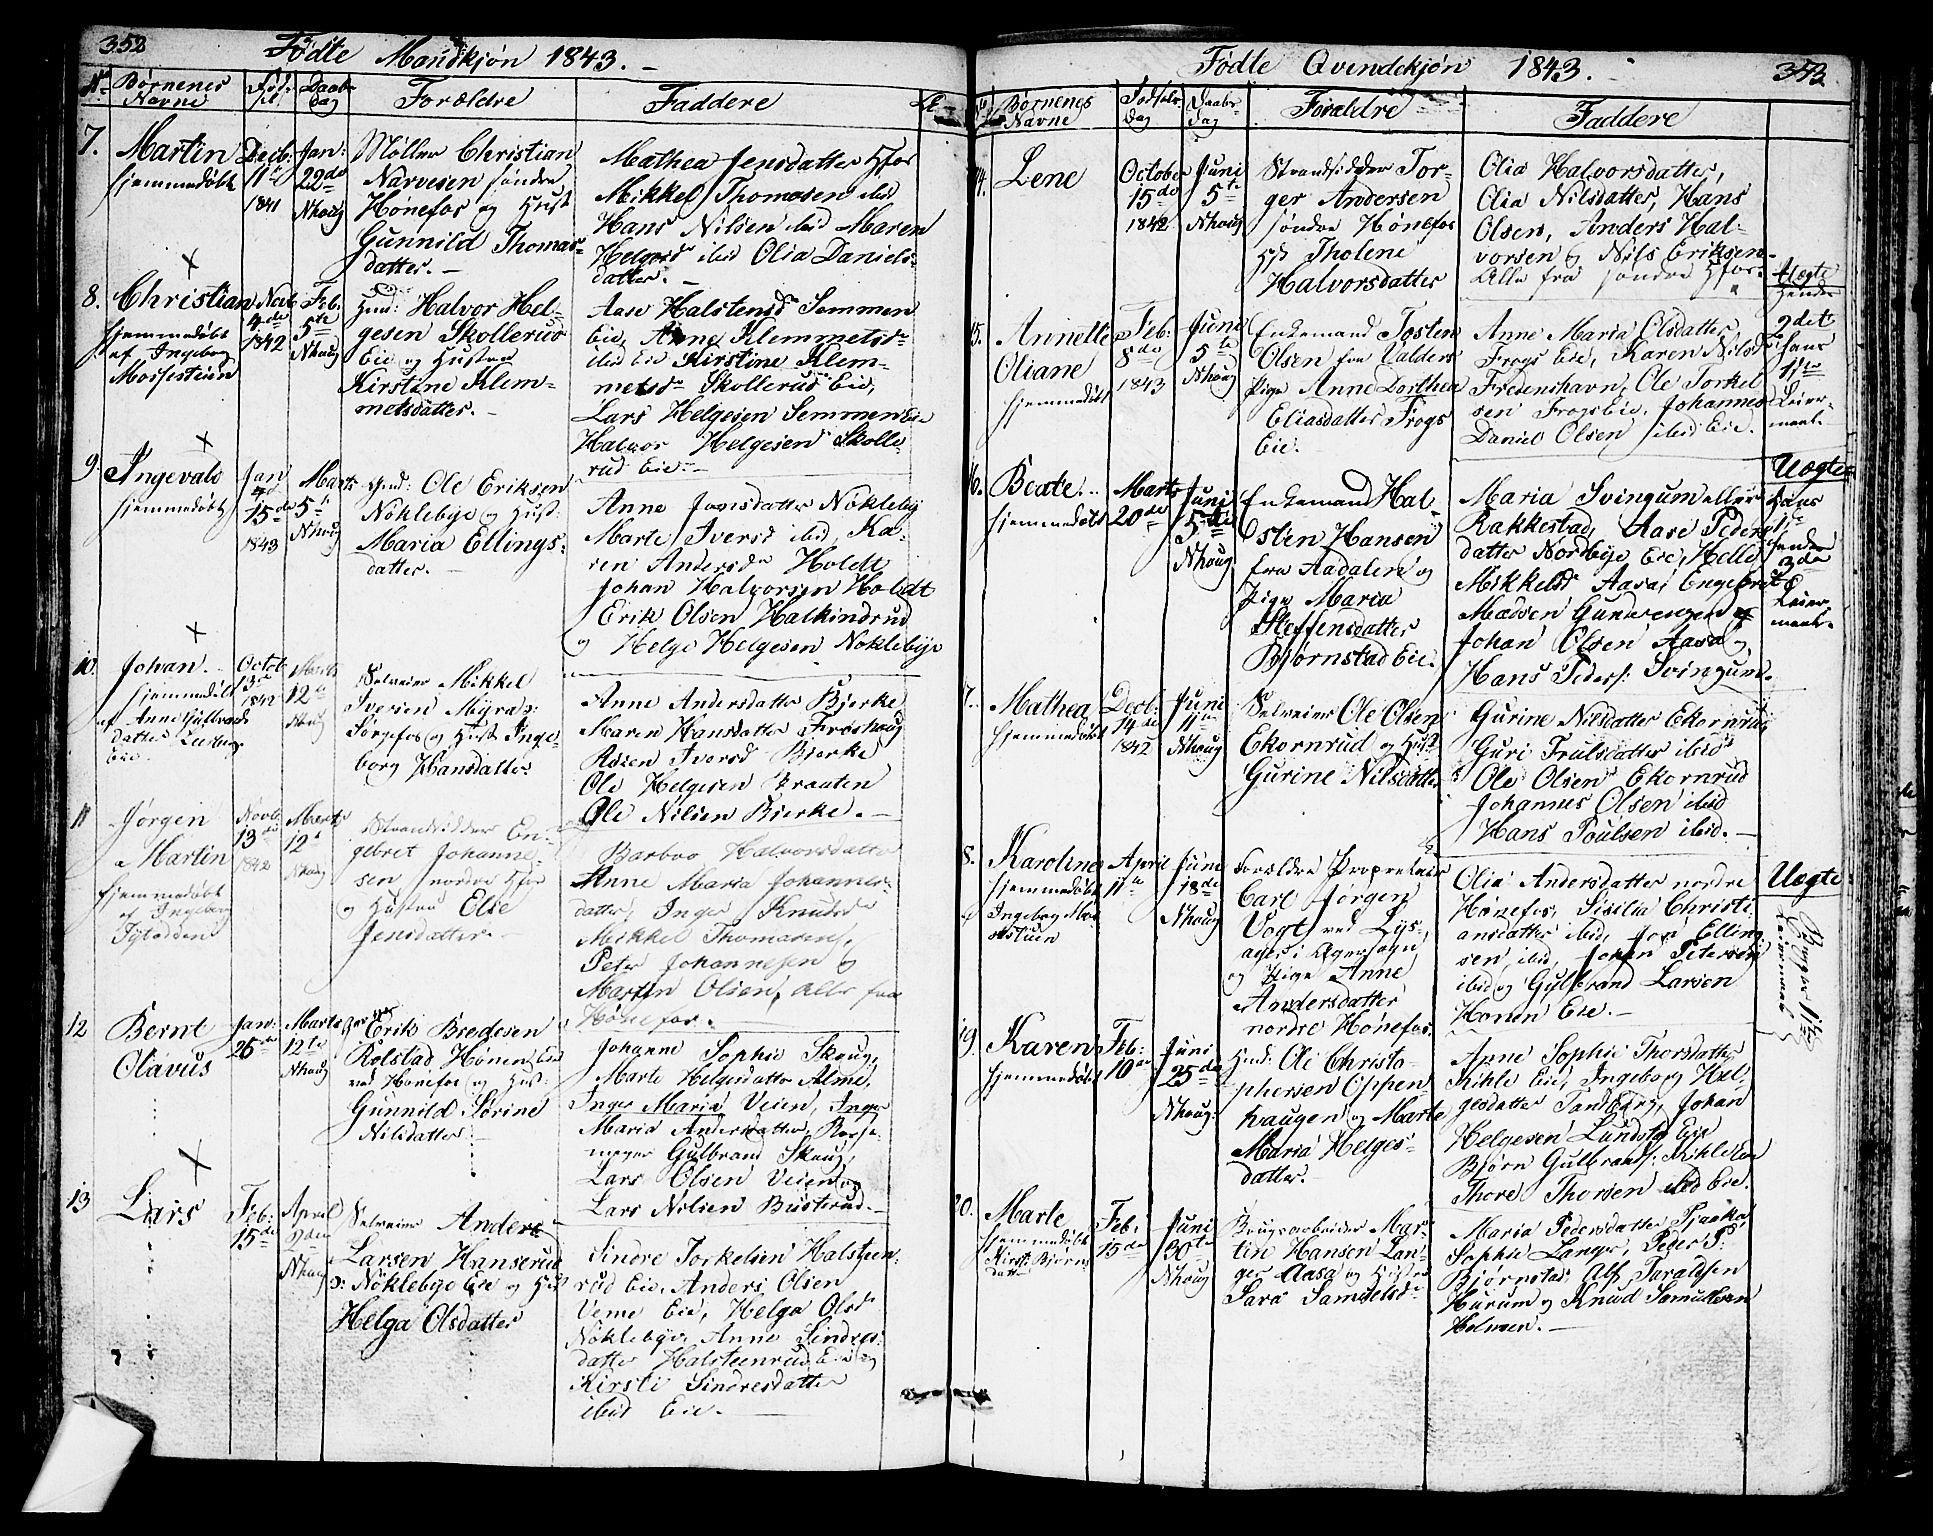 352
Fødte Mandkjøn 1843. –
No Børnenes Navne
Fødsel
Daabs dag
Forældre
Faddere
7.
Martin
hjemmedøbt
Decb:
11te
1841
Jan:
22de
Nhoug
Møller Christian
Narvesen søndre
Hønefos og Hust
Gunnild Thomas-
datter. –
Mathea Jensdatter Hfos
Mikkel Thomasen ibid,
Hans Nilsen ibid Maren
Helgesd ibid Olia Daniels-
datter. –
8.
Christian
hjemmedøbt
af Ingeborg
Mossestuen
Novb
4de
1842
Feb.
5te
Nhoug
Huusm: Halvor Hel-
gesen Skollerud
Eie og Hustru
Kirstine Klem-
metsdatter. –
Aase Halstensd Semmen
Eie, Anne Klemmetsd
ibid Eie Kirstine Klem-
metsdr Skollerud Eie,
Lars Helgesen Semmen Eie
Halvor Helgesen Skolle-
rud Eie. –
9.
Ingevald
hjemmedøbt
Jan
15de
1843
Marts
5te
Nhoug
Ole Eriksen
Noklebye og Hust:
Maria Ellings-
datter. –
Anne Jonsdatter Noklebÿ
Marte Iversd ibid, Ka-
ren Andersdr Holdt
Johan Halvorsen Holdt
Erik Olsen Halkindrud
og Helge Helgesen Noklebÿe
10.
Johan
hjemmedøbt
af Anne Gulbrands
datter
Eie.
Octob
13de
1842
Marts
12te
Nhoug
Selveier Mikkel
Iversen Myra
og Hust Inge-
borg Hansdatter
Anne Andersdatter Bjerke
Maren Hansdatter Froshoug
Iversd Bjerke
Ole Helgesen Braaten
Ole Nilsen Bjerke. –
11
Jørgen
Martin
hjemmedøbt
af Ingeborg
Novb
13de
1842
Marts
12te
Nhoug
Strandsidder En-
gebret Johanne-
sen nordre Hfos
og Hustru Else
Jensdatter. –
Barbro Halvorsdatter
Anne Maria Johannes-
datter, Inger Knudsdr
Mikkel Thomasen,
Peter Johannesen og
Martin Olsen, alle fra
Hønefos. –
12
Bernt
Olavus
Jan:
26de
Marts
12te
Nhoug
Erik Bredesen
Rolstad Hønen Eie
ved Hønefos og Hus:
Gunnild Sørine
Nilsdatter
Johanne Sophie Skoug,
Marte Helgesdatter Alme,
Inger Maria Veien, Inger
Maria Andersdatter,
Gulbrand Skoug,
Lars Olsen Veien og
Lars Nilsen Busterud. –
13
Lars
Feb:
15de
April
2den
Nhoug
Selveier Anders
Larsen Hanserud
Noklebye Eie og Hust
Helga Olsdatter
Sindre Torkelsen Halsteen-
rud Eie, Anders Olsen
Veme Eie, Helga Olsdr
Noklebye, Anne Sindres-
datter Halsteenrud Eie og
Kirsti Sindresdatter
ibid Eie. –
Fødte Qvindekjøn 1843. –
353
Børnenes Navne
Fødsels Dag
Daabs-dag
Forældre
Faddere
14.
Lene
October
15de
1842
Juni
5te
Nhoug
Strandsidder Tor-
ger Andersen
søndre Hønefos
Tholene
Halvorsdatter
Olia Halvorsdatter,
Olia Nilsdatter, Hans
Olsen, Anders Hal-
vorsen og Nils Eriksen
Alle fra søndre Hfos.
15.
Annette
Oliane
hjemmedøbt
Feb:
8de
1843
Juni
5te
Nhoug
Enkemand Tosten
Olsen fra Valders
Pige Anne Dorthea
Eliasdatter Frogs
Eie.
Anne Maria Olsdatter
Frogs Eie, Karen Nilsd
Fredenshavn, Ole Torkel
sen Frogs Eie, Johannes
Daniel Olsen ibid Eie.
Uægte
hendes
2det
hans
1ste
Leier-
maal.
16.
Beate
hjemmedøbt
Marts
20de
Juni
5te
Nhoug
Enkemand Hal-
sten Hansen
fra Aadalen og
Pige Maria
Steffensdatter
Bjørnstad Eie.
Maria Svingum eller
Rakkestad, Aase Peders
datter Nordbye Eie, Helle
Mikkelsd Aasa, Engebret
Madsen Gunderengen
Johan Olsen Aasa og
Hans Peders: Svingum.
Uægte
hans
1ste
hendes
3de
Leier-
maal.
17.
Mathea
hjemmedøbt
Decb:
14de
1842
Juni
11te
Nhoug
Selveier Ole Olsen
Ekornrud og Hust
Gurine Nilsdatter
Gurine Nilsdatter Ekornrud
Guri Trulsdatter ibid
Ole Olsen Ekornrud
Johannes Olsen ibid
Hans Poulsen ibid. –
18.
Karoline
hjemmedøbt
Ingeborg Mos-
sestuen
April
11te
Juni
18de
Nhoug
Forældre Proprietair
Carl Jørgen
Vogt ved Lys-
ager i Agersogn
og Pige Anne
Andersdatter
nordre Hønefos.
Olia Andersdatter nordre
Hønefos, Sisilia Christi
ansdatter ibid, Jon Elling-
sen ibid, Johan Petersen
ibid og Gulbrand Larsen
Hønen Eie. –
Uægte
Begges 1ste
Leiermaal
19.
Karen
hjemmedøbt
Feb:
10de
Juni
25de
Nhoug:
Huusm: Ole Christo-
phersen Oppen
haugen og Marte
Maria Helges-
datter.
Anne Sophie Thorsdatter
Kihle Eie, Ingeborg Hel-
gesdatter Tandberg, Johan
Helgesen Lundstad Eie
Bjørn Gulbrands: Kihle Eie
Thore Thorsen ibid Eie.
20.
Marte
hjemmedøbt
Kirsti Bjørns
datter
Feb.
15de
Juni
30te
Nhoug
Brugsarbeider Mar-
tin Hansen Lan-
ger Aasa og Hustru
Sara Samuelsdr
Maria Pedersdatter Tjaaka,
Sophie Lange, Peder P:
Bjørnstad Alf Taraldsen
Hurum og Knud Samuelsen
Holmen. –